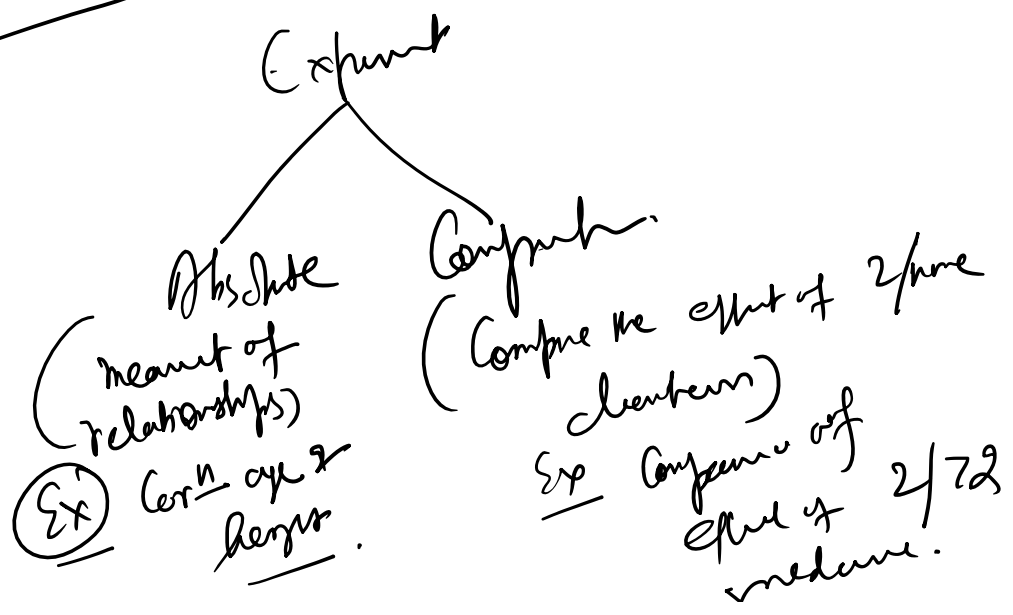 Experiment
Absolute
(Measurement of
relationships)
Ex Corrⁿ age &
height.
Comparative
(Compare the effect of 2/more
characters)
Ex Comparison of
effect of 2/>2
medicine.